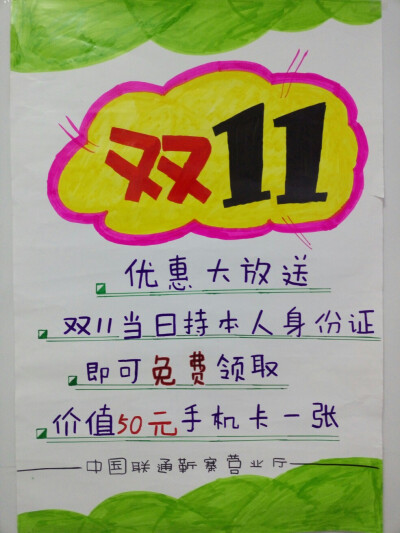 双11
优惠大放送
双11当日持本人身份证
即可免费领取
价值50元手机卡一张
中国联通靳寨营业厅